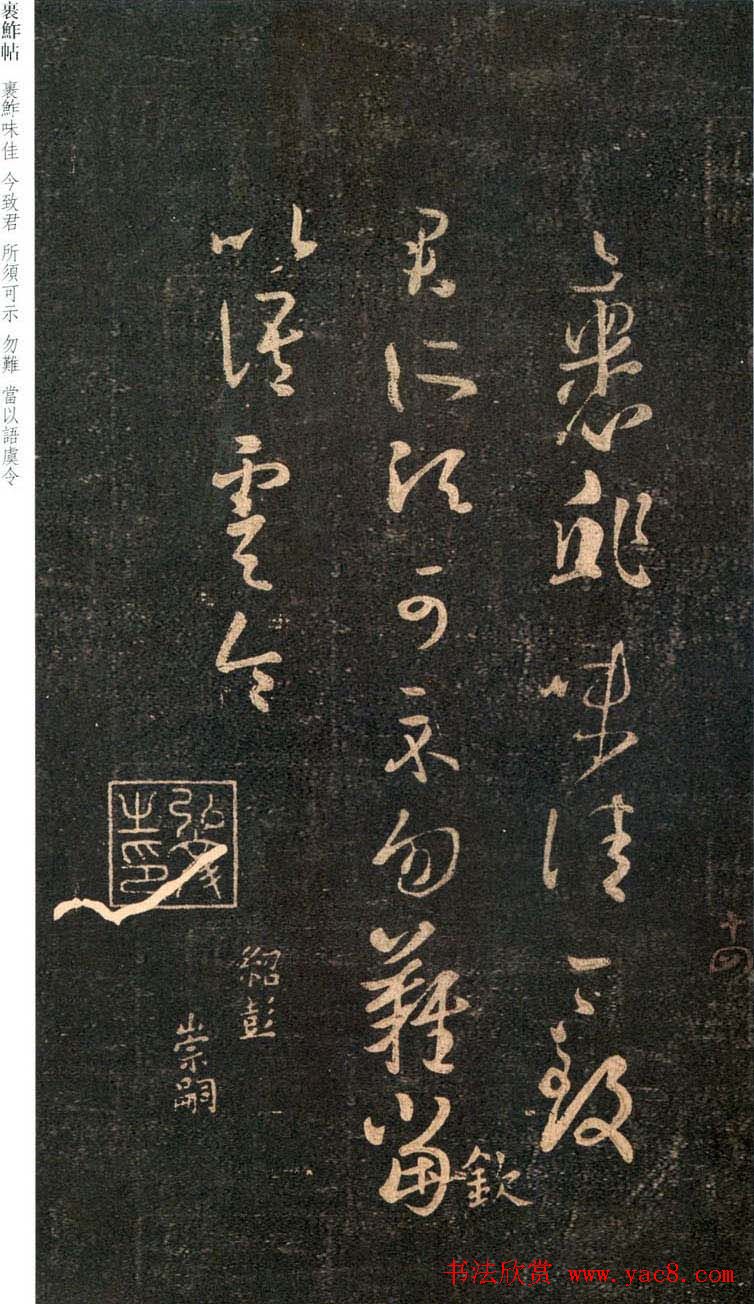 裹鮓味佳今致
君所須可示勿難當
以語虞令
欽
紹彭
崇嗣
弘文之印
十四
裹鮓帖 裹鮓味佳 今致君 所須可示 勿難 當以語虞令
书法欣赏 www.yac8.com